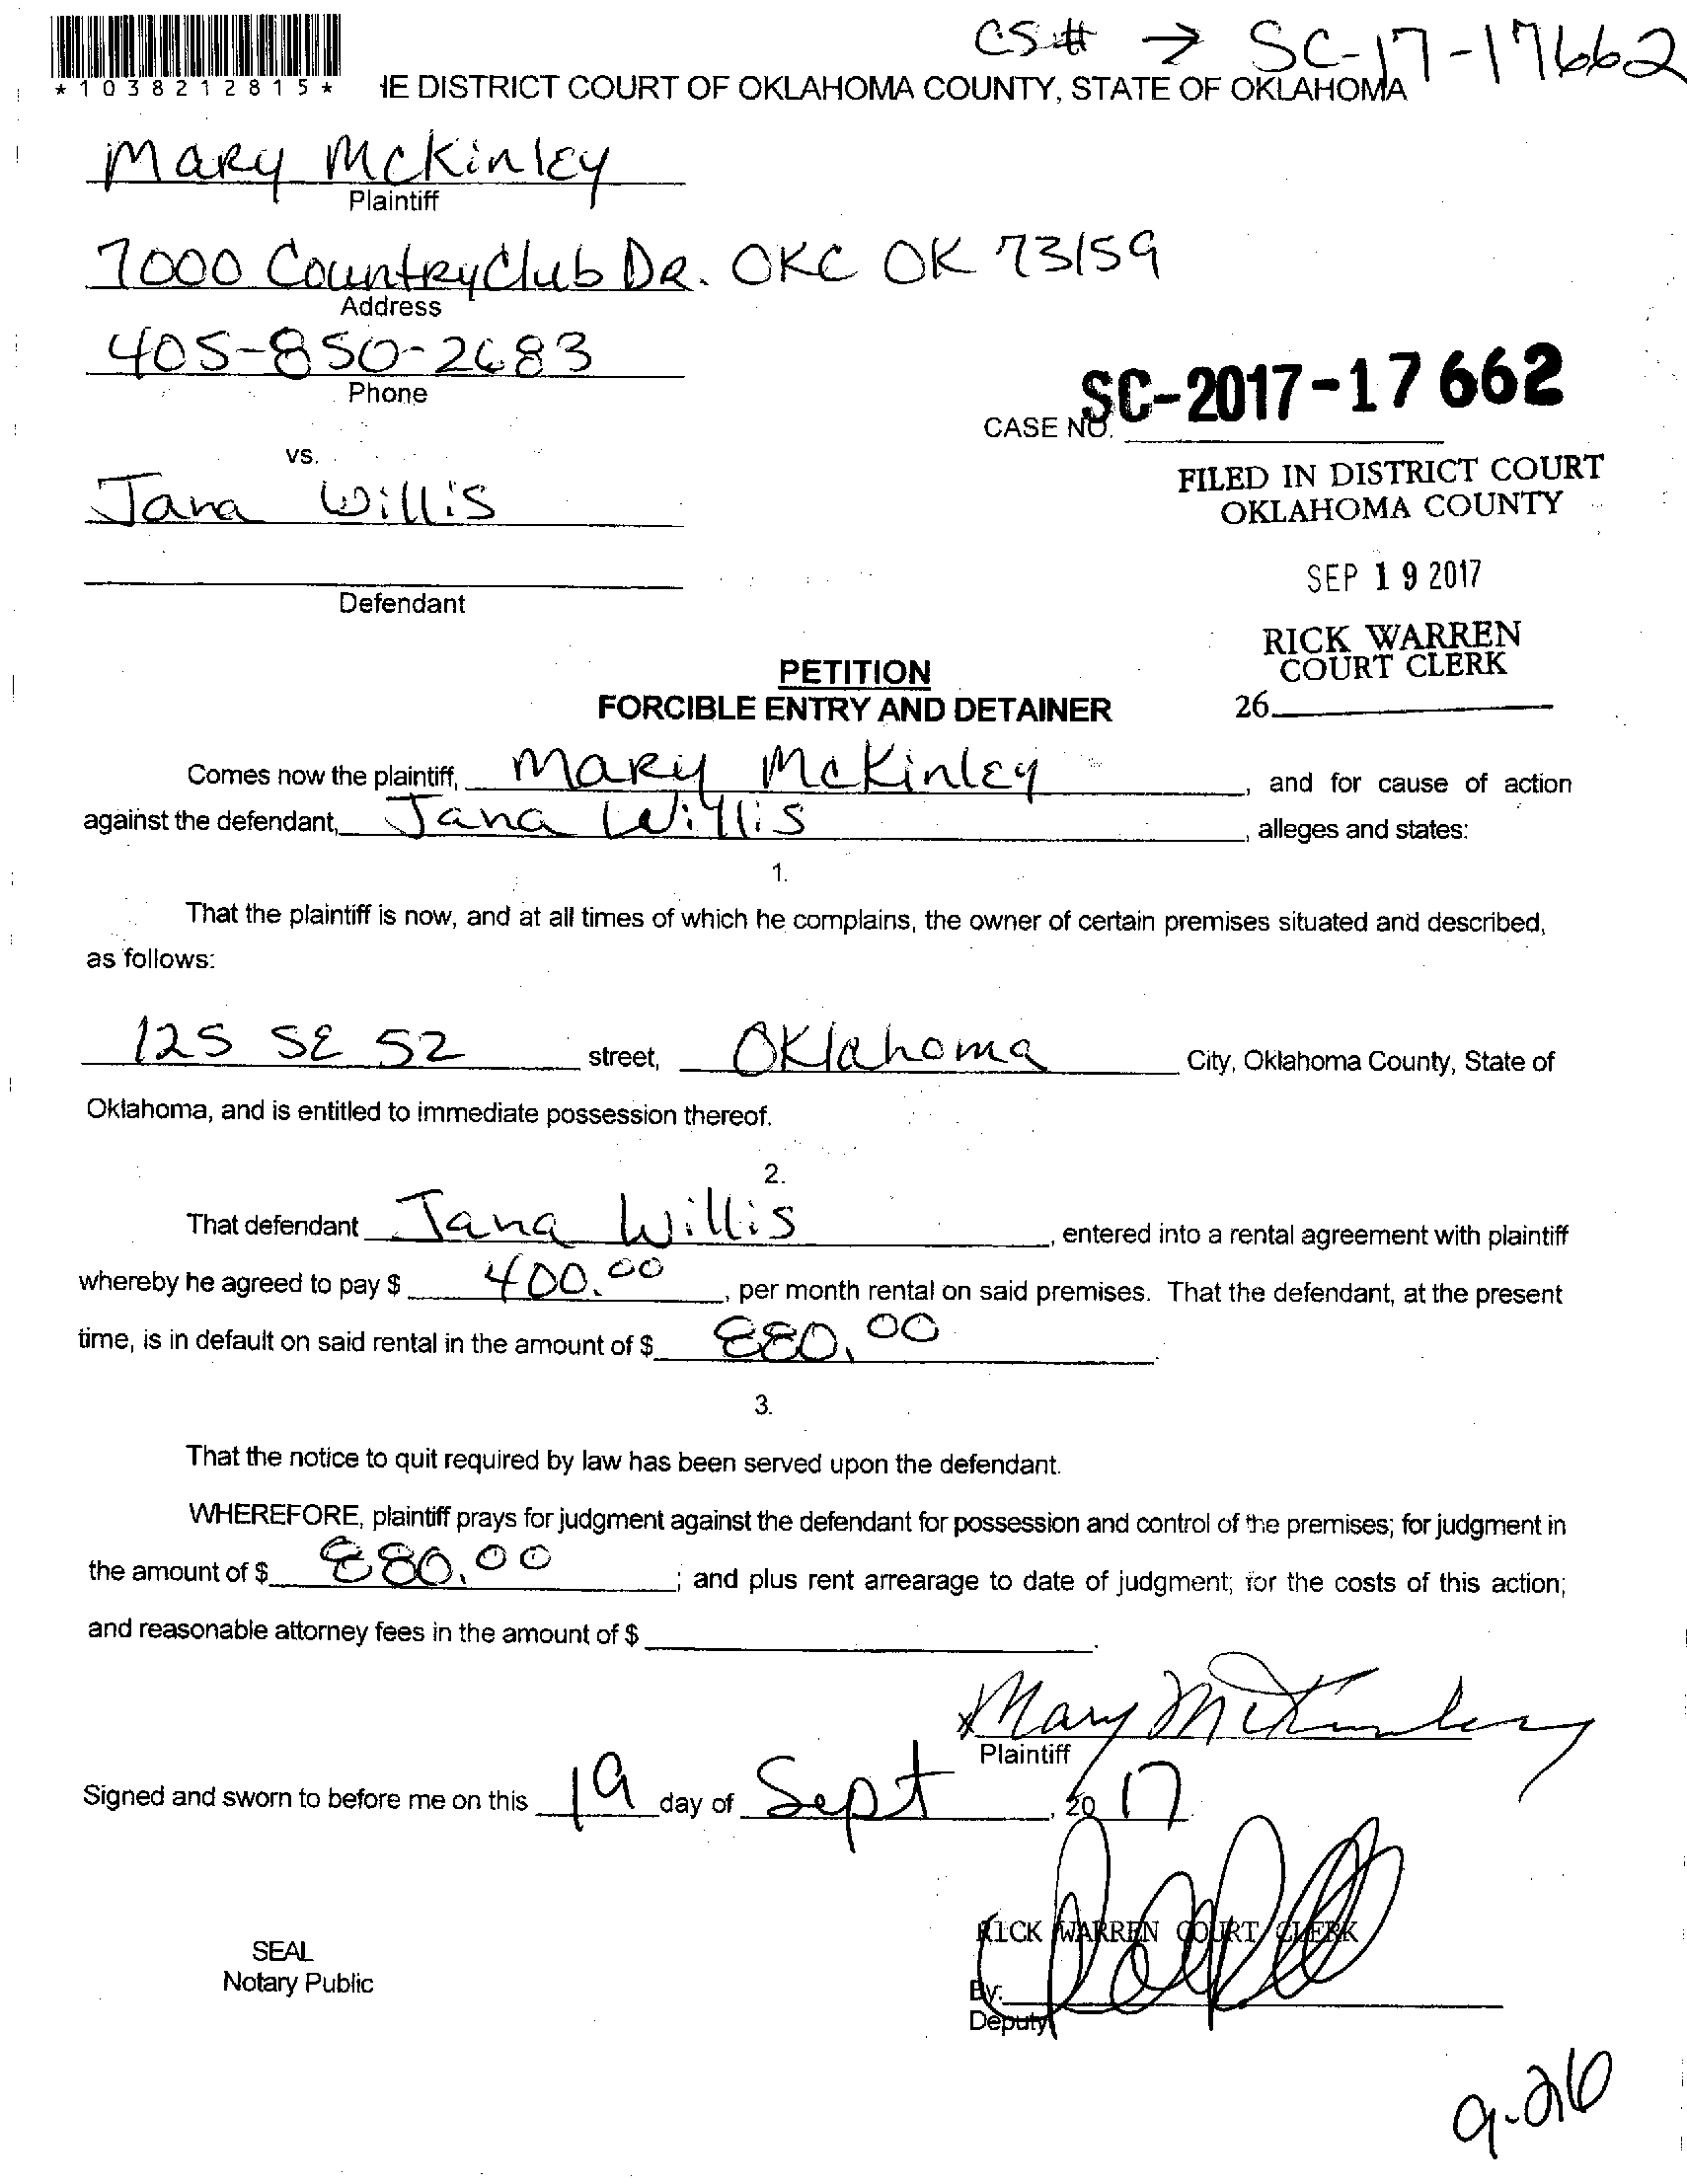 CS# → SC-17-17662
*1038212815*
IE DISTRICT COURT OF OKLAHOMA COUNTY, STATE OF OKLAHOMA
Mary McKinley
Plaintiff
7000 Country Club Dr. OKC OK 73159
Address
405-850-2683
Phone
CASE NO. SC-2017-17662
vs.
FILED IN DISTRICT COURT
OKLAHOMA COUNTY
Jana Willis
SEP 19 2017
Defendant
RICK WARREN
COURT CLERK
26
PETITION
FORCIBLE ENTRY AND DETAINER
Comes now the plaintiff, Mary McKinley, and for cause of action
against the defendant, Jana Willis, alleges and states:
1.
That the plaintiff is now, and at all times of which he complains, the owner of certain premises situated and described,
as follows:
125 SE 52 street, Oklahoma City, Oklahoma County, State of
Oklahoma, and is entitled to immediate possession thereof.
2.
That defendant Jana Willis, entered into a rental agreement with plaintiff
whereby he agreed to pay $ 400.00, per month rental on said premises. That the defendant, at the present
time, is in default on said rental in the amount of $ 880.00.
3.
That the notice to quit required by law has been served upon the defendant.
WHEREFORE, plaintiff prays for judgment against the defendant for possession and control of the premises; for judgment in
the amount of $ 880.00; and plus rent arrearage to date of judgment; for the costs of this action;
and reasonable attorney fees in the amount of $
x Mary McKinley
Plaintiff
Signed and sworn to before me on this 19 day of Sept, 2017
RICK WARREN COURT CLERK
SEAL
Notary Public
By:
Deputy
9-26